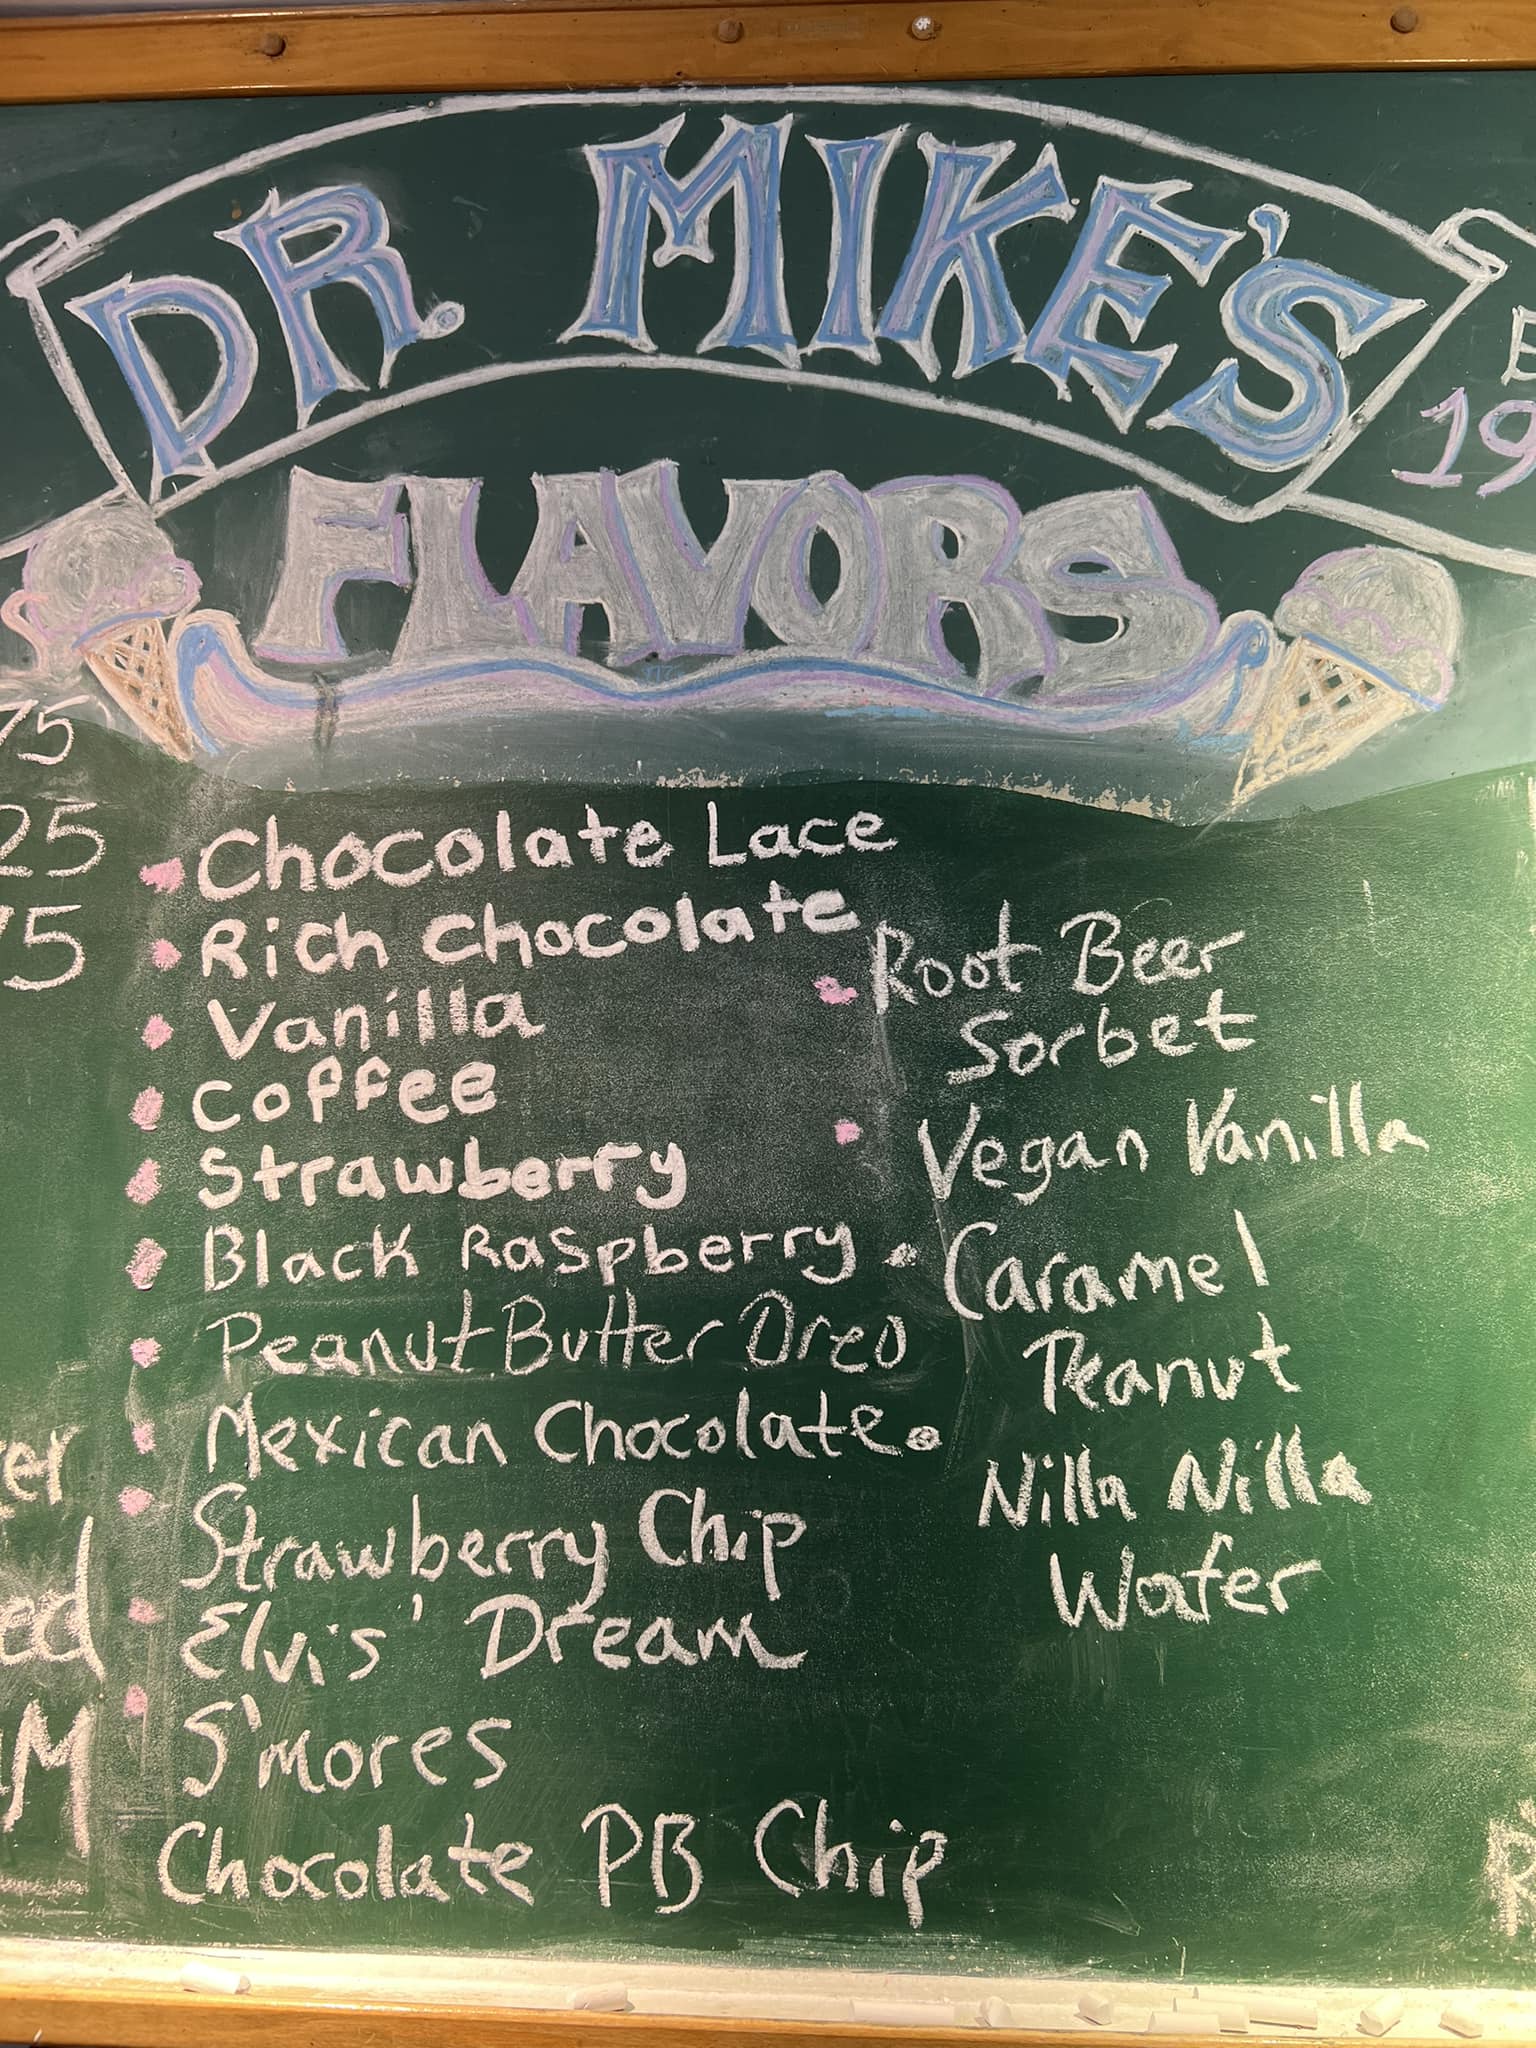 DR. MIKE'S
FLAVORS
19
75
25
75
Chocolate Lace
Rich Chocolate
Vanilla
Coffee
Strawberry
Black Raspberry
Peanut Butter Oreo
Mexican Chocolate
Strawberry Chip
Elvis' Dream
S'mores
Chocolate PB Chip
Root Beer
Sorbet
Vegan Vanilla
Caramel
Peanut
Nilla Nilla
Wafer